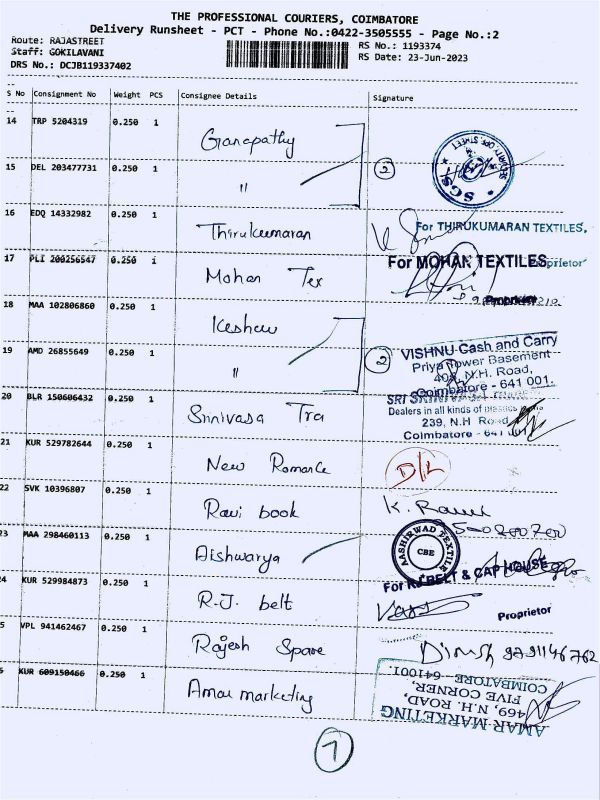 THE PROFESSIONAL COURIERS, COIMBATORE
Delivery Runsheet - PCT - Phone No.:0422-3505555 - Page No.:2
Route: RAJASTREET
Staff: GOKILAVANI
DRS No.: DCJB119337402
RS No.: 1193374
RS Date: 23-Jun-2023
S No Consignment No Weight PCS Consignee Details Signature
14 TRP 5204319 0.250 1 Ganapathy
15 DEL 203477731 0.250 1 "
2
16 EDQ 14332982 0.250 1 Thirukumaran
For THIRUKUMARAN TEXTILES,
Proprietor
17 PLI 200256547 0.250 1 Mohan Tex
For MOHAN TEXTILES
Proprietor
18 MAA 102806860 0.250 1 Keshav
19 AMD 26855649 0.250 1 "
2
VISHNU Cash and Carry
Priya Tower Basement
N.H. Road,
Coimbatore - 641 001.
20 BLR 150606432 0.250 1 Srinivasa Tra
SRI
Dealers in all kinds of
239, N.H Road
Coimbatore - 641 001
21 KUR 529782644 0.250 1 New Romance
D/L
22 SVK 10396807 0.250 1 Ravi book
K. Ravi
23 MAA 298460113 0.250 1 Aishwarya
AASHIRWAD TEXTILE
CBE
24 KUR 529984873 0.250 1 R.J. belt
For RJ BELT & CAP HOUSE
Proprietor
5 VPL 941462467 0.250 1 Rajesh Spare
Dinesh
6 KUR 609150466 0.250 1 Amar marketing
AMAR MARKETING
469, N.H. ROAD,
FIVE CORNER,
COIMBATORE - 641001.
7